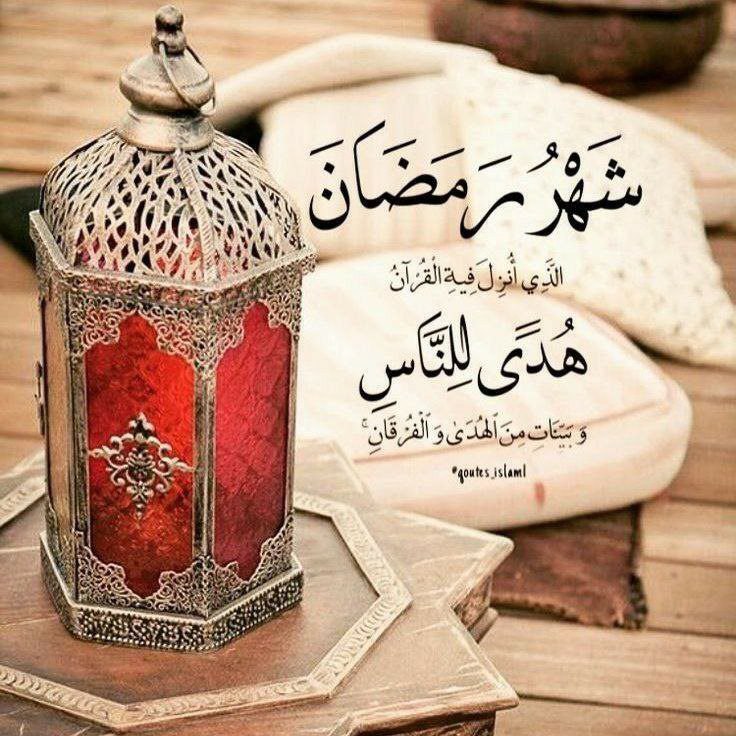 شَهْرُ رَمَضَانَ
الَّذِي أُنْزِلَ فِيهِ الْقُرْآنُ
هُدًى لِلنَّاسِ
وَ بَيِّنَاتٍ مِنَ الْهُدَىٰ وَ الْفُرْقَانِ ۚ
#qoutes_islaml